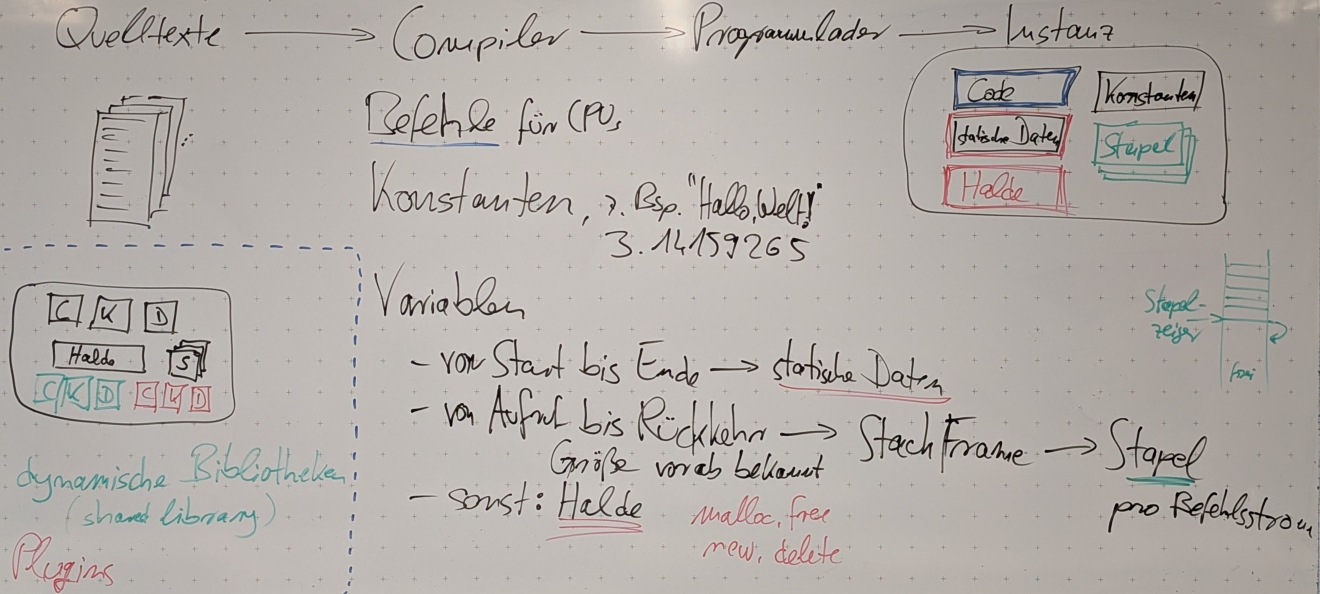 Quelltexte → Compiler → Programmlader → Instanz
Code
Konstanten
statische Daten
Stapel
Halde
Befehle für CPUs
Konstanten, z. Bsp. "Hallo, Welt!"
3.14159265
Variablen
- von Start bis Ende → statische Daten
- von Aufruf bis Rückkehr → Stack Frame → Stapel
Größe vorab bekannt
pro Befehlsstrom
- sonst: Halde
malloc, free
new, delete
Stapel-
zeiger
frei
C K D
Halde S
C K D C K D
dynamische Bibliotheken
(shared library)
Plugins